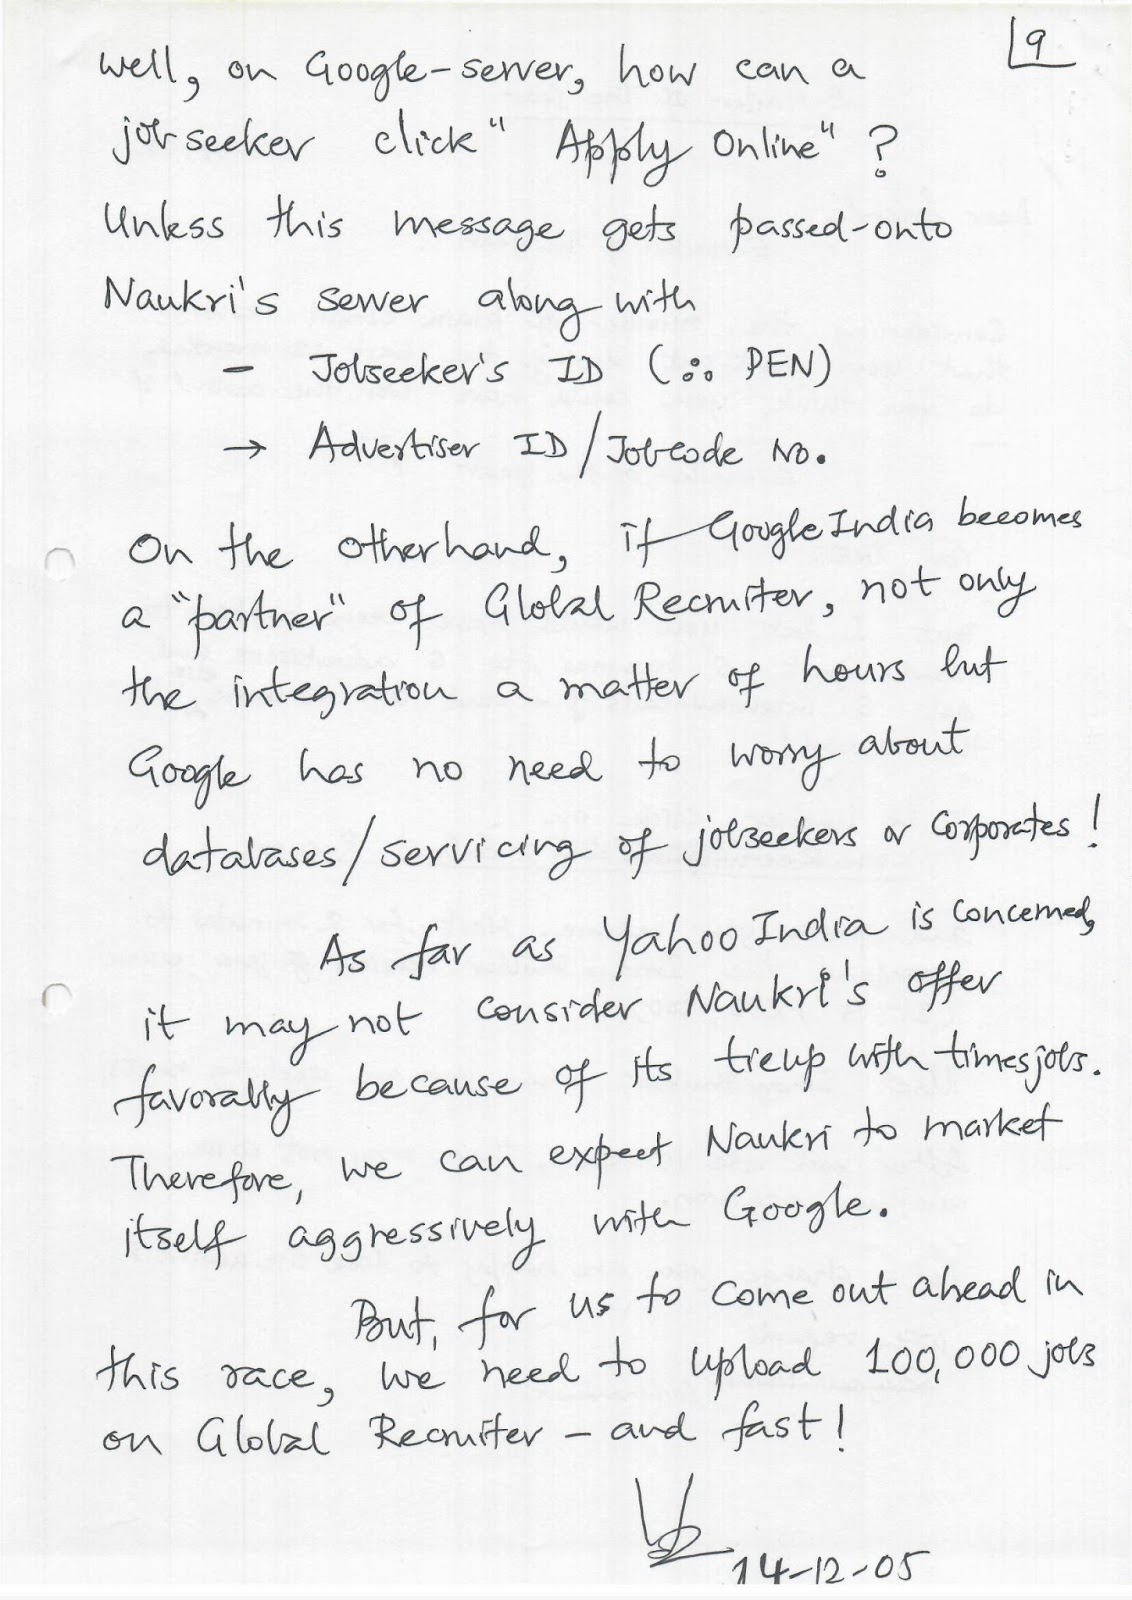 9
well, on Google-server, how can a
jobseeker click "Apply Online"?
Unless this message gets passed-onto
Naukri's server along with
- Jobseeker's ID (∴ PEN)
→ Advertiser ID/Jobcode No.
On the otherhand, if Google India becomes
a "partner" of Global Recruiter, not only
the integration a matter of hours but
Google has no need to worry about
databases/servicing of jobseekers or Corporates!
As far as Yahoo India is concerned,
it may not consider Naukri's offer
favorably because of its tieup with timesjobs.
Therefore, we can expect Naukri to market
itself aggressively with Google.
But, for us to come out ahead in
this race, we need to upload 100,000 jobs
on Global Recruiter - and fast!
14-12-05